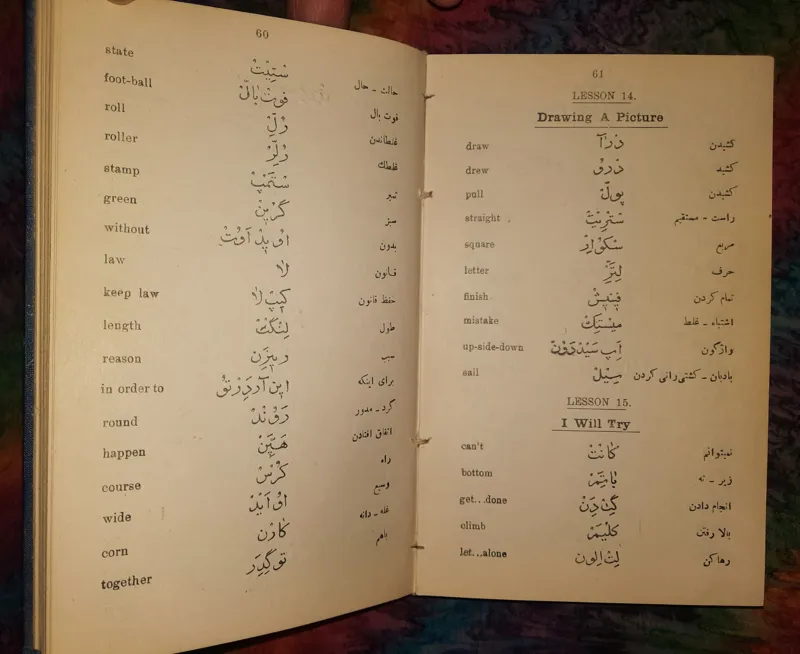 60
state سْتِیْتْ حالت - حال
foot-ball فوتْ بالّ فوت بال
roll رُلّ غلطاندن
roller رُلِّرْ غلطك
stamp سْتَمْپْ تمبر
green گْرینْ سبز
without بدون
law لاٰ قانون
keep law کیپْ لاٰ حفظ قانون
length لِنْگْثْ طول
reason ریزِنْ سبب
in order to اینْ آرْدِرْ توُ برای اینکه
round رَوُنْدْ گرد - مدور
happen هَپِنْ اتفاق افتادن
course کُرْسْ راه
wide وسیع
corn کٰارْن غله - دانه
together توُگِدِرْ باهم
61
LESSON 14.
Drawing A Picture
draw دْرآ کشیدن
drew دْروُ کشید
pull پولّ کشیدن
straight سْتْرِیْتْ راست - مستقیم
square سْکواِرْ مربع
letter لِتِّرْ حرف
finish فینیشْ تمام کردن
mistake میسْتِیکْ اشتباه - غلط
up-side-down اَپ سَیْدْ دَوْنْ واژگون
sail سِیْلْ بادبان - کشتی رانی کردن
LESSON 15.
I Will Try
can't کٰانْتْ نمیتوانم
bottom باتِمْ زیر - ته
get...done گِتْ دَنْ انجام دادن
climb کْلَیْمْ بالا رفتن
let...alone لِتْ اِلونْ رها کن